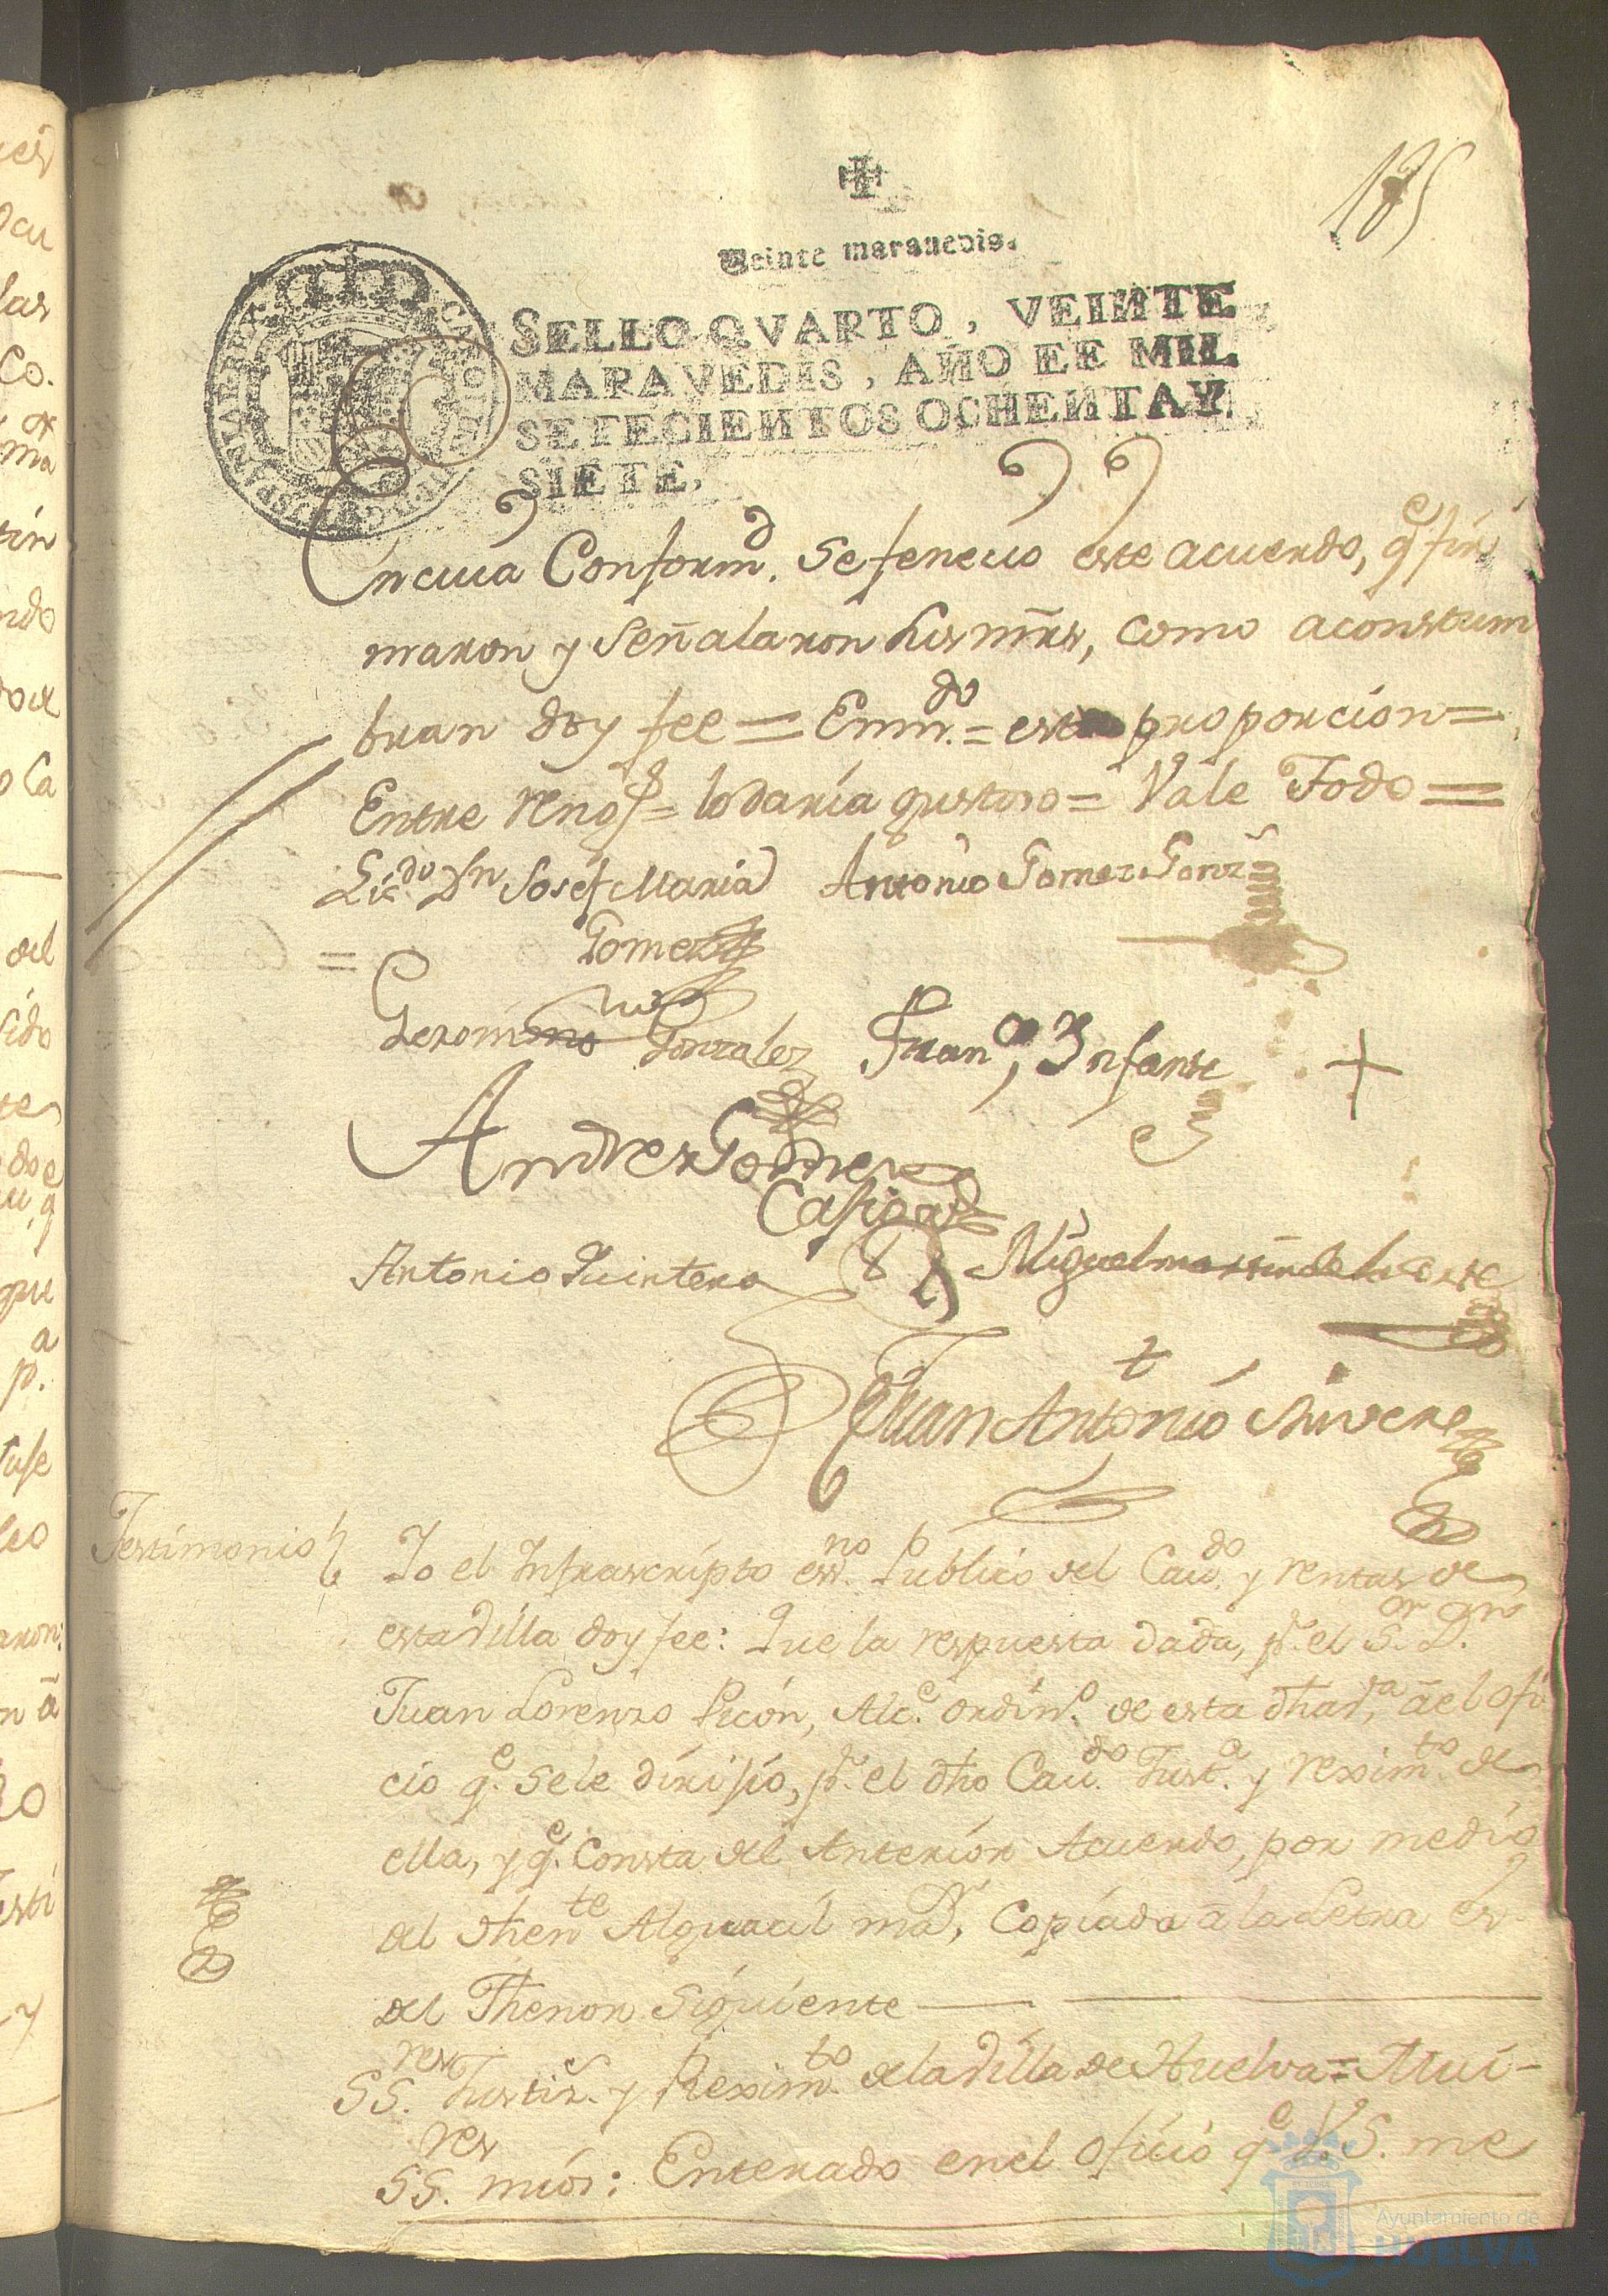 175
Veinte maravedis.
SELLO QVARTO, VEINTE
MARAVEDIS, AÑO DE MIL
SETECIENTOS OCHENTA Y
SIETE.
En cuia Conformd. se fenecio este acuerdo, qe fir
maron y señalaron sus mrds, como acostum
bran doy fee = Enmdo. = esta proporcion =
Entre rengs = lo daría gustoso = Vale Todo =
Licdo Dn Josef Maria Antonio Gomez Gonz
Gomez
Geronimo Gonzalez Franco, Infante
Andres Gomez
Antonio Quintero Miguel martin de la corte
Juan Antonio
Testimonio Yo el Infrascripto essno. Publico del Cavdo. y rentas de
esta Villa doy fee: Que la respuesta dada, pr. el Sor. Dn.
Juan Lorenzo Picón, Alce. ordino. de esta dha Va, ã el ofi
cio qe. se le dirixio, pr. el dho Cavdo. Justa. y reximto. de
ella, y qe. Consta del Anterior Acuerdo, por medio
del Thente Alguacil maor, Copiada ã la Letra es
del Thenor Siguiente
SSres. Justiza. y Reximto. de la Villa de Huelva = Mui
SSres. mios: Enterado en el oficio qe V.S. me
Ayuntamiento de
HUELVA